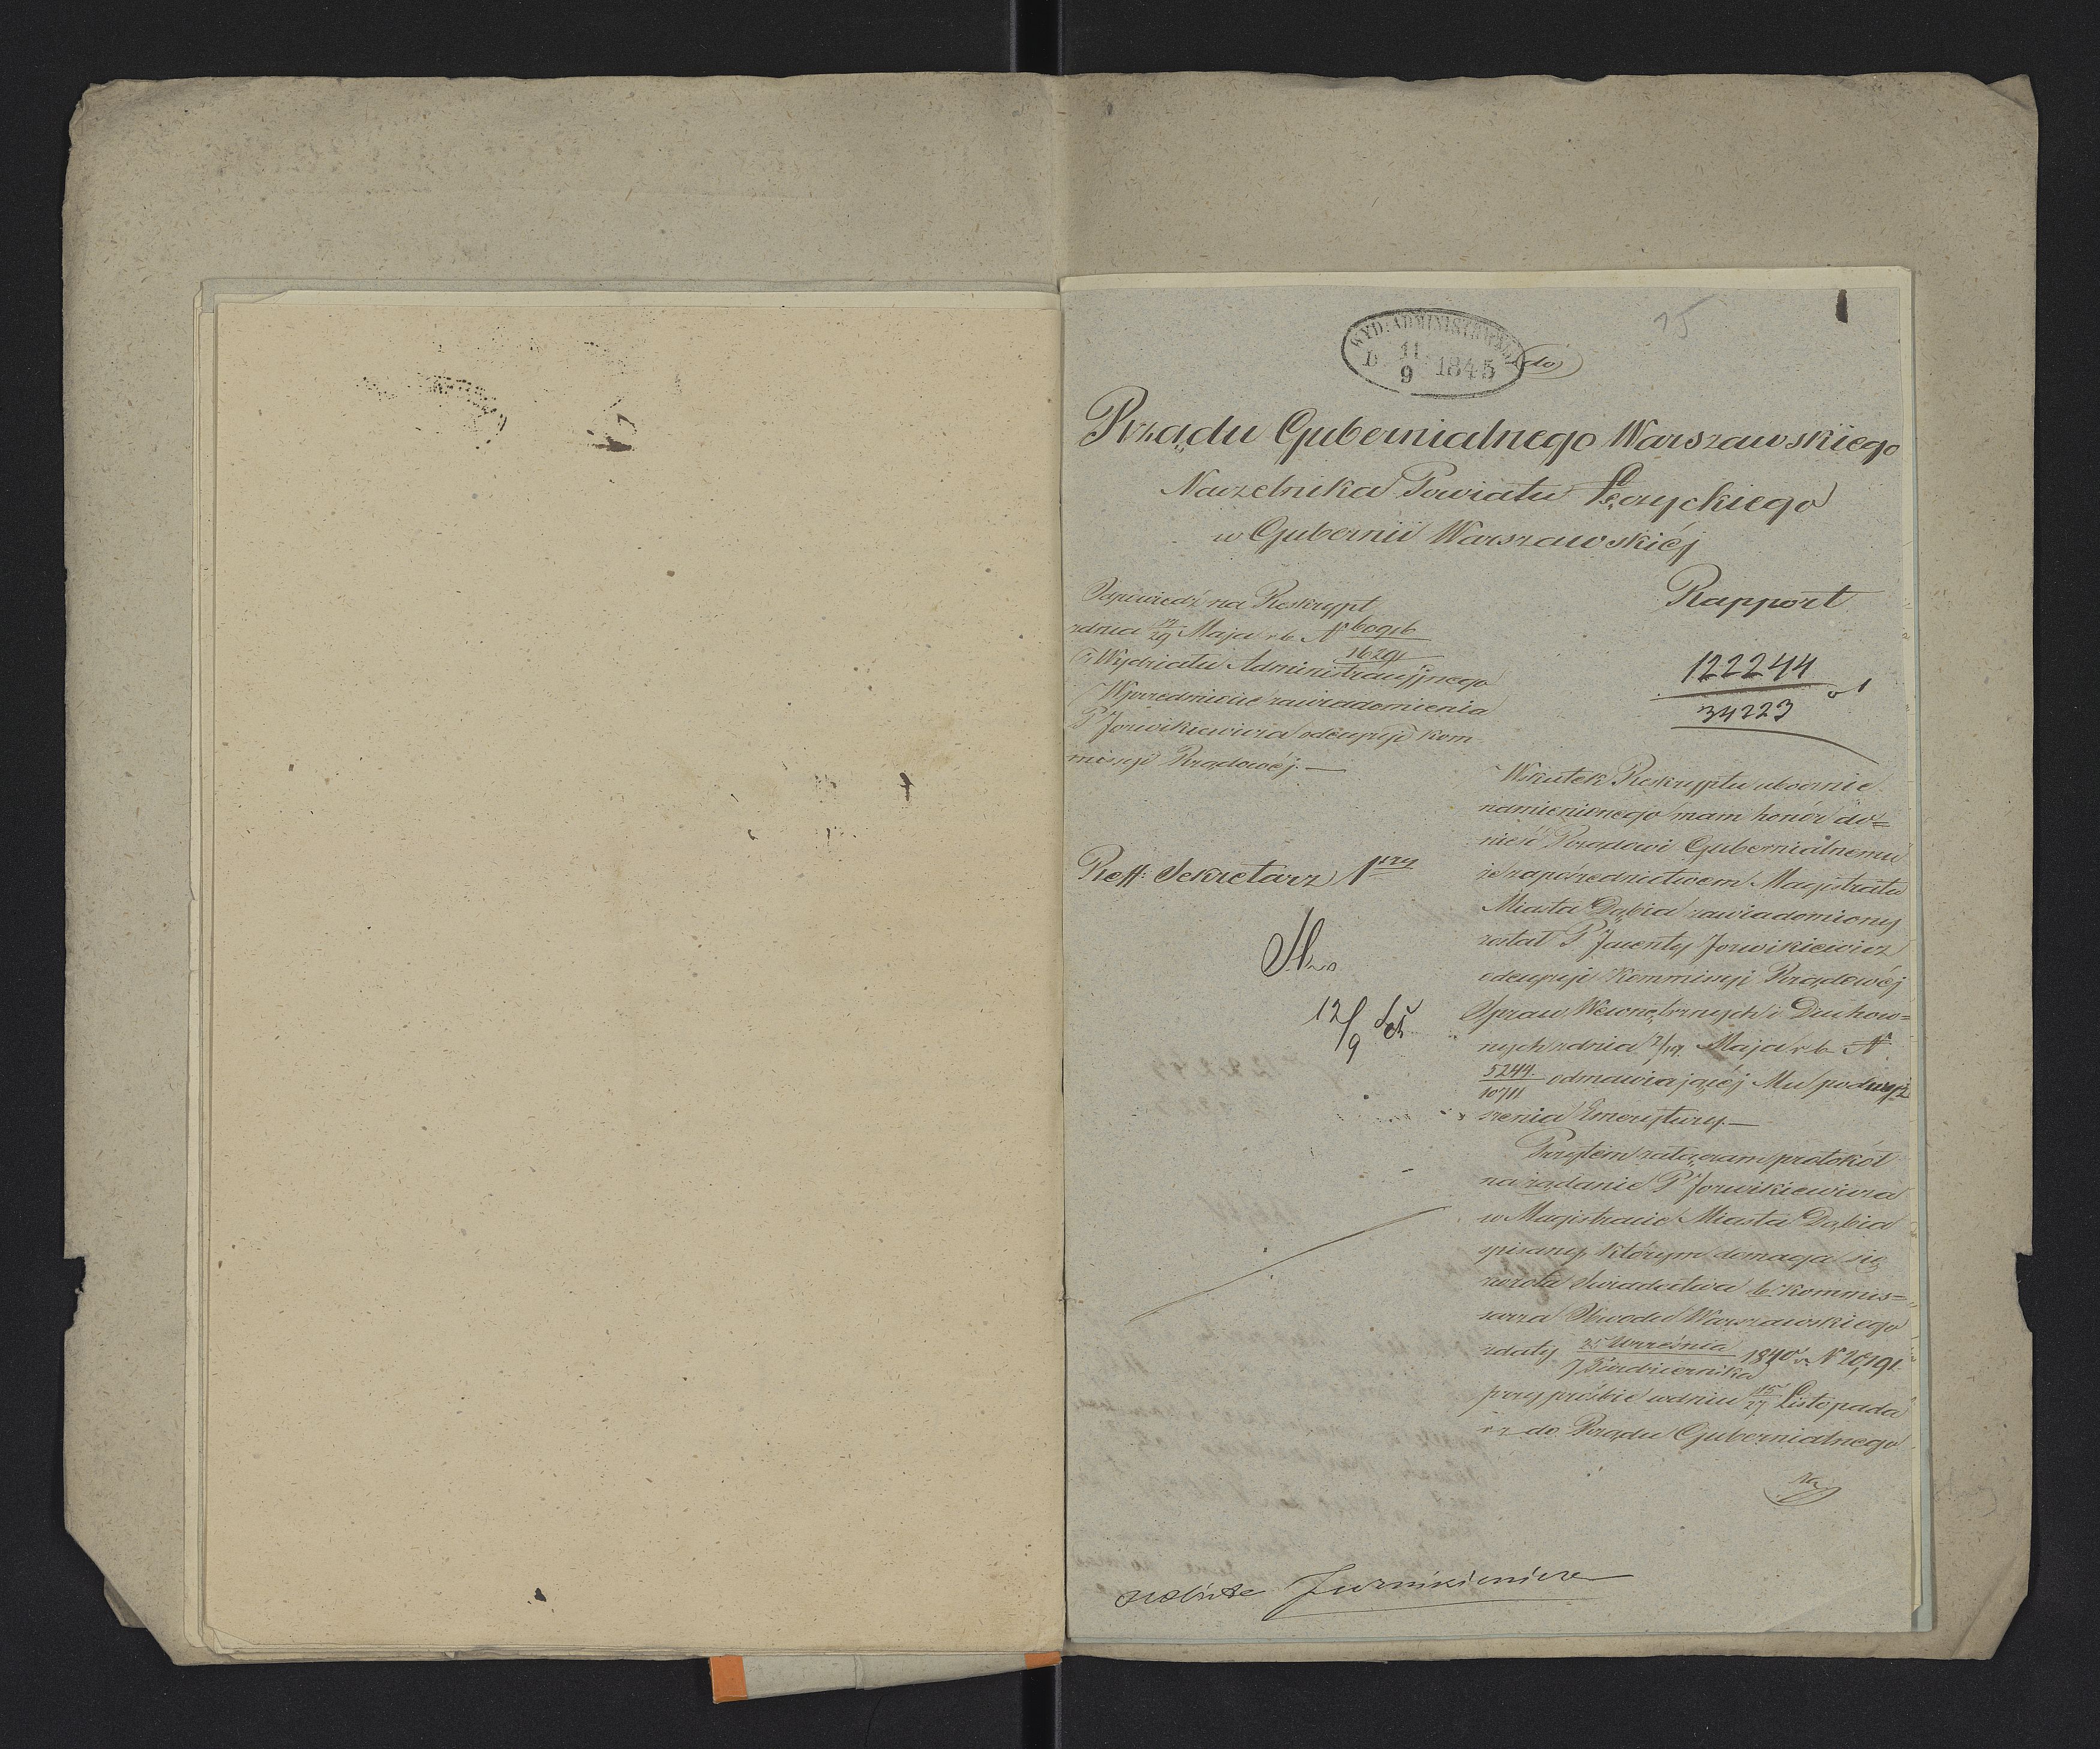 15
WYD: ADMINISTRACYI
D. 11/9 1845
do
Rządu Gubernialnego Warszawskiego
Naczelnika Powiatu Łęczyckiego
w Gubernii Warszawskiéj
Rapport
122244
34223
Odpowiedź na Reskrypt
zdnia 17/29 Maja r b. N 60916
16291
z Wydziału Administracyjnego
W przedmiocie zawiadomienia
P Jozwikiewicza o decyzyi Kom
missyi Rządowéj. —
Reff: Sekretarz 1szy
12/9
Wskutek Reskryptu ubocznie
namienionego mam honor do=
nieść Rządowi Gubernialnemu
że za pośrednictwem Magistratu
Miasta Dąbia zawiadomiony
został P. Jacenty Jozwikiewicz
o decyzyi Kommissyi Rządowéj
Spraw Wewnętrznych i Duchow=
nych zdnia 7/19 Maja r b. N
5244/10711 odmawiającéj Mu podwyż
szenia Emerytury. —
Przytem załączam protokół
na żądanie P Jozwikiewicza
w Magistracie Miasta Dąbia
spisany, którym domaga się
zwrotu Świadectwa b. Kommis=
sarza Obwodu Warszawskiego
zdaty 25 Września/7 Października 1840 r. N 20,191
przy prośbie wdniu 15/27 Listopada
r z do Rządu Gubernialnego
na
Jozwikiewicza